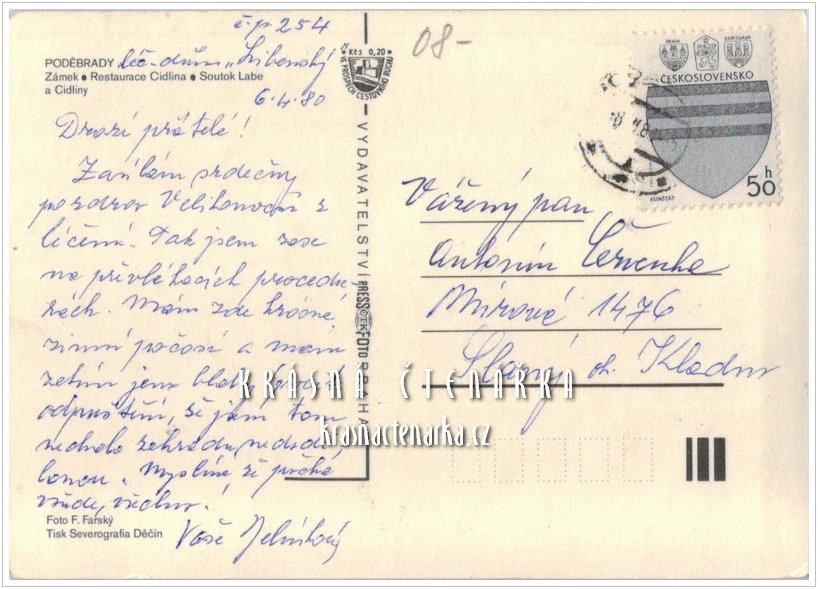 č.p. 254
PODĚBRADY léč. dům „Libenský"
Zámek • Restaurace Cidlina • Soutok Labe
a Cidliny
6.4.80
Drazí přátelé!
Zasílám srdečný
pozdrav Velikonoční z
léčení. Tak jsem zase
na procedu-
rách. Mám zde krásné
zimní počasí a mám
zatím jen
odpuštění, že jsem tam
zahradu nedodě-
lanou. Myslíme, že počká
všude, všechno!
Vaše
Foto F. Farský
Tisk Severografia Děčín
Kčs 0,20
VE PROSPĚCH CESTOVNÍHO RUCHU
VYDAVATELSTVÍ PRESSFOTO PRAHA
ČTK
08-
PRAHA
BRATISLAVA
ČESKOSLOVENSKO
50 h
KUNŠTÁT
Vážený pan
Antonín Červenka
Mírová 1476
Slaný ok. Kladno
KRÁSNÁ ČTENÁŘKA
krasnactenarka.cz